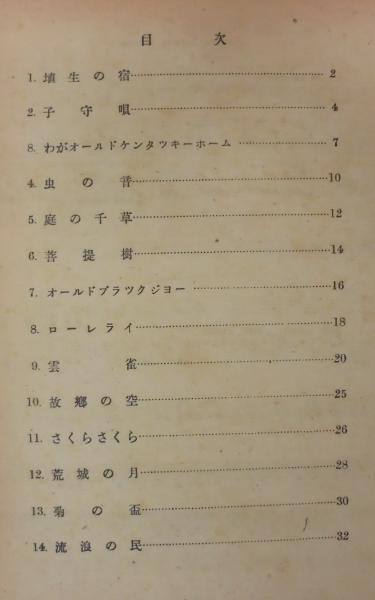 目次
1. 埴生の宿 2
2. 子守唄 4
8. わがオールドケンタツキーホーム 7
4. 虫の音 10
5. 庭の千草 12
6. 菩提樹 14
7. オールドブラツクジヨー 16
8. ローレライ 18
9. 雲雀 20
10. 故郷の空 25
11. さくらさくら 26
12. 荒城の月 28
13. 菊の盃 30
14. 流浪の民 32